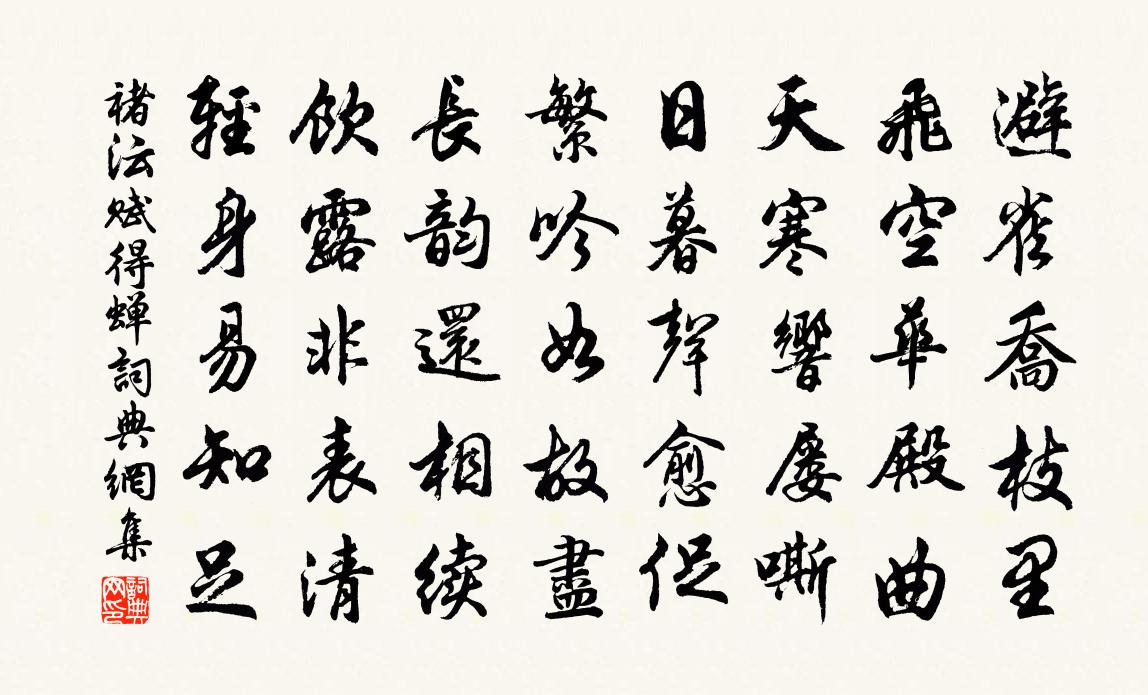 避雀喬枝里
飛空華殿曲
天寒響屢嘶
日暮聲愈促
繁吟如故盡
長韵還相續
飲露非表清
輕身易知足
褚沄賦得蟬詞典網集
詞典
网印